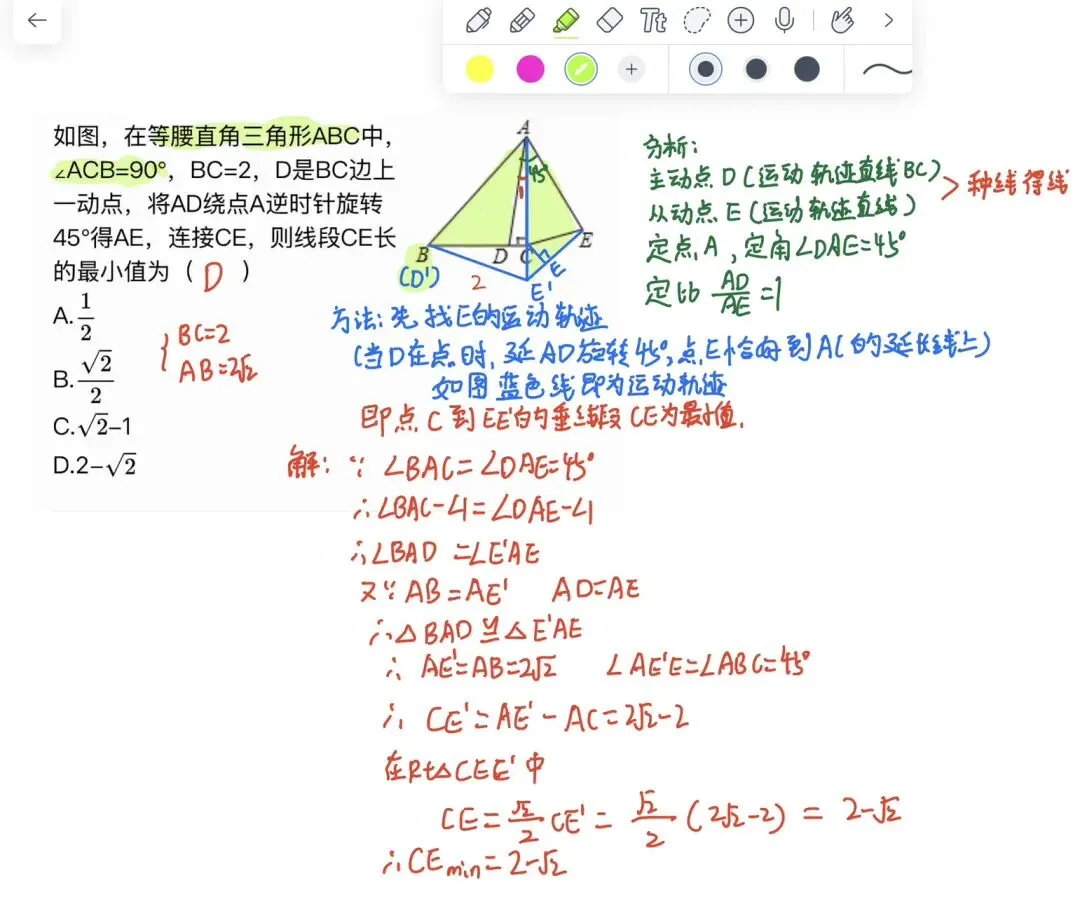 Tt
如图，在等腰直角三角形ABC中，
∠ACB=90°，BC=2，D是BC边上
一动点，将AD绕点A逆时针旋转
45°得AE，连接CE，则线段CE长
的最小值为（ D ）
A. 1/2
B. √2/2
C.√2−1
D.2−√2
{ BC=2
AB=2√2
A
45°
1
B
D
C
E
(D')
2
E
E'
分析：
主动点 D (运动轨迹直线BC)
从动点 E (运动轨迹直线)
> 种线得线
定点A，定角∠DAE=45°
定比 AD/AE =1
方法：先找E的运动轨迹
(当D在点时，延AD旋转45°，点E恰好到AC的延长线上)
如图蓝色线即为运动轨迹
即点C到EE'的垂线段CE为最小值．
解：∵ ∠BAC=∠DAE=45°
∴∠BAC-∠1=∠DAE-∠1
∴∠BAD =∠E'AE
又∵AB=AE' AD=AE
∴△BAD≌△E'AE
∴ AE'=AB=2√2 ∠AE'E=∠ABC=45°
∴ CE'=AE'-AC=2√2-2
在Rt△CEE'中
CE= √2/2 CE'= √2/2 (2√2-2) = 2-√2
∴CEmin=2-√2